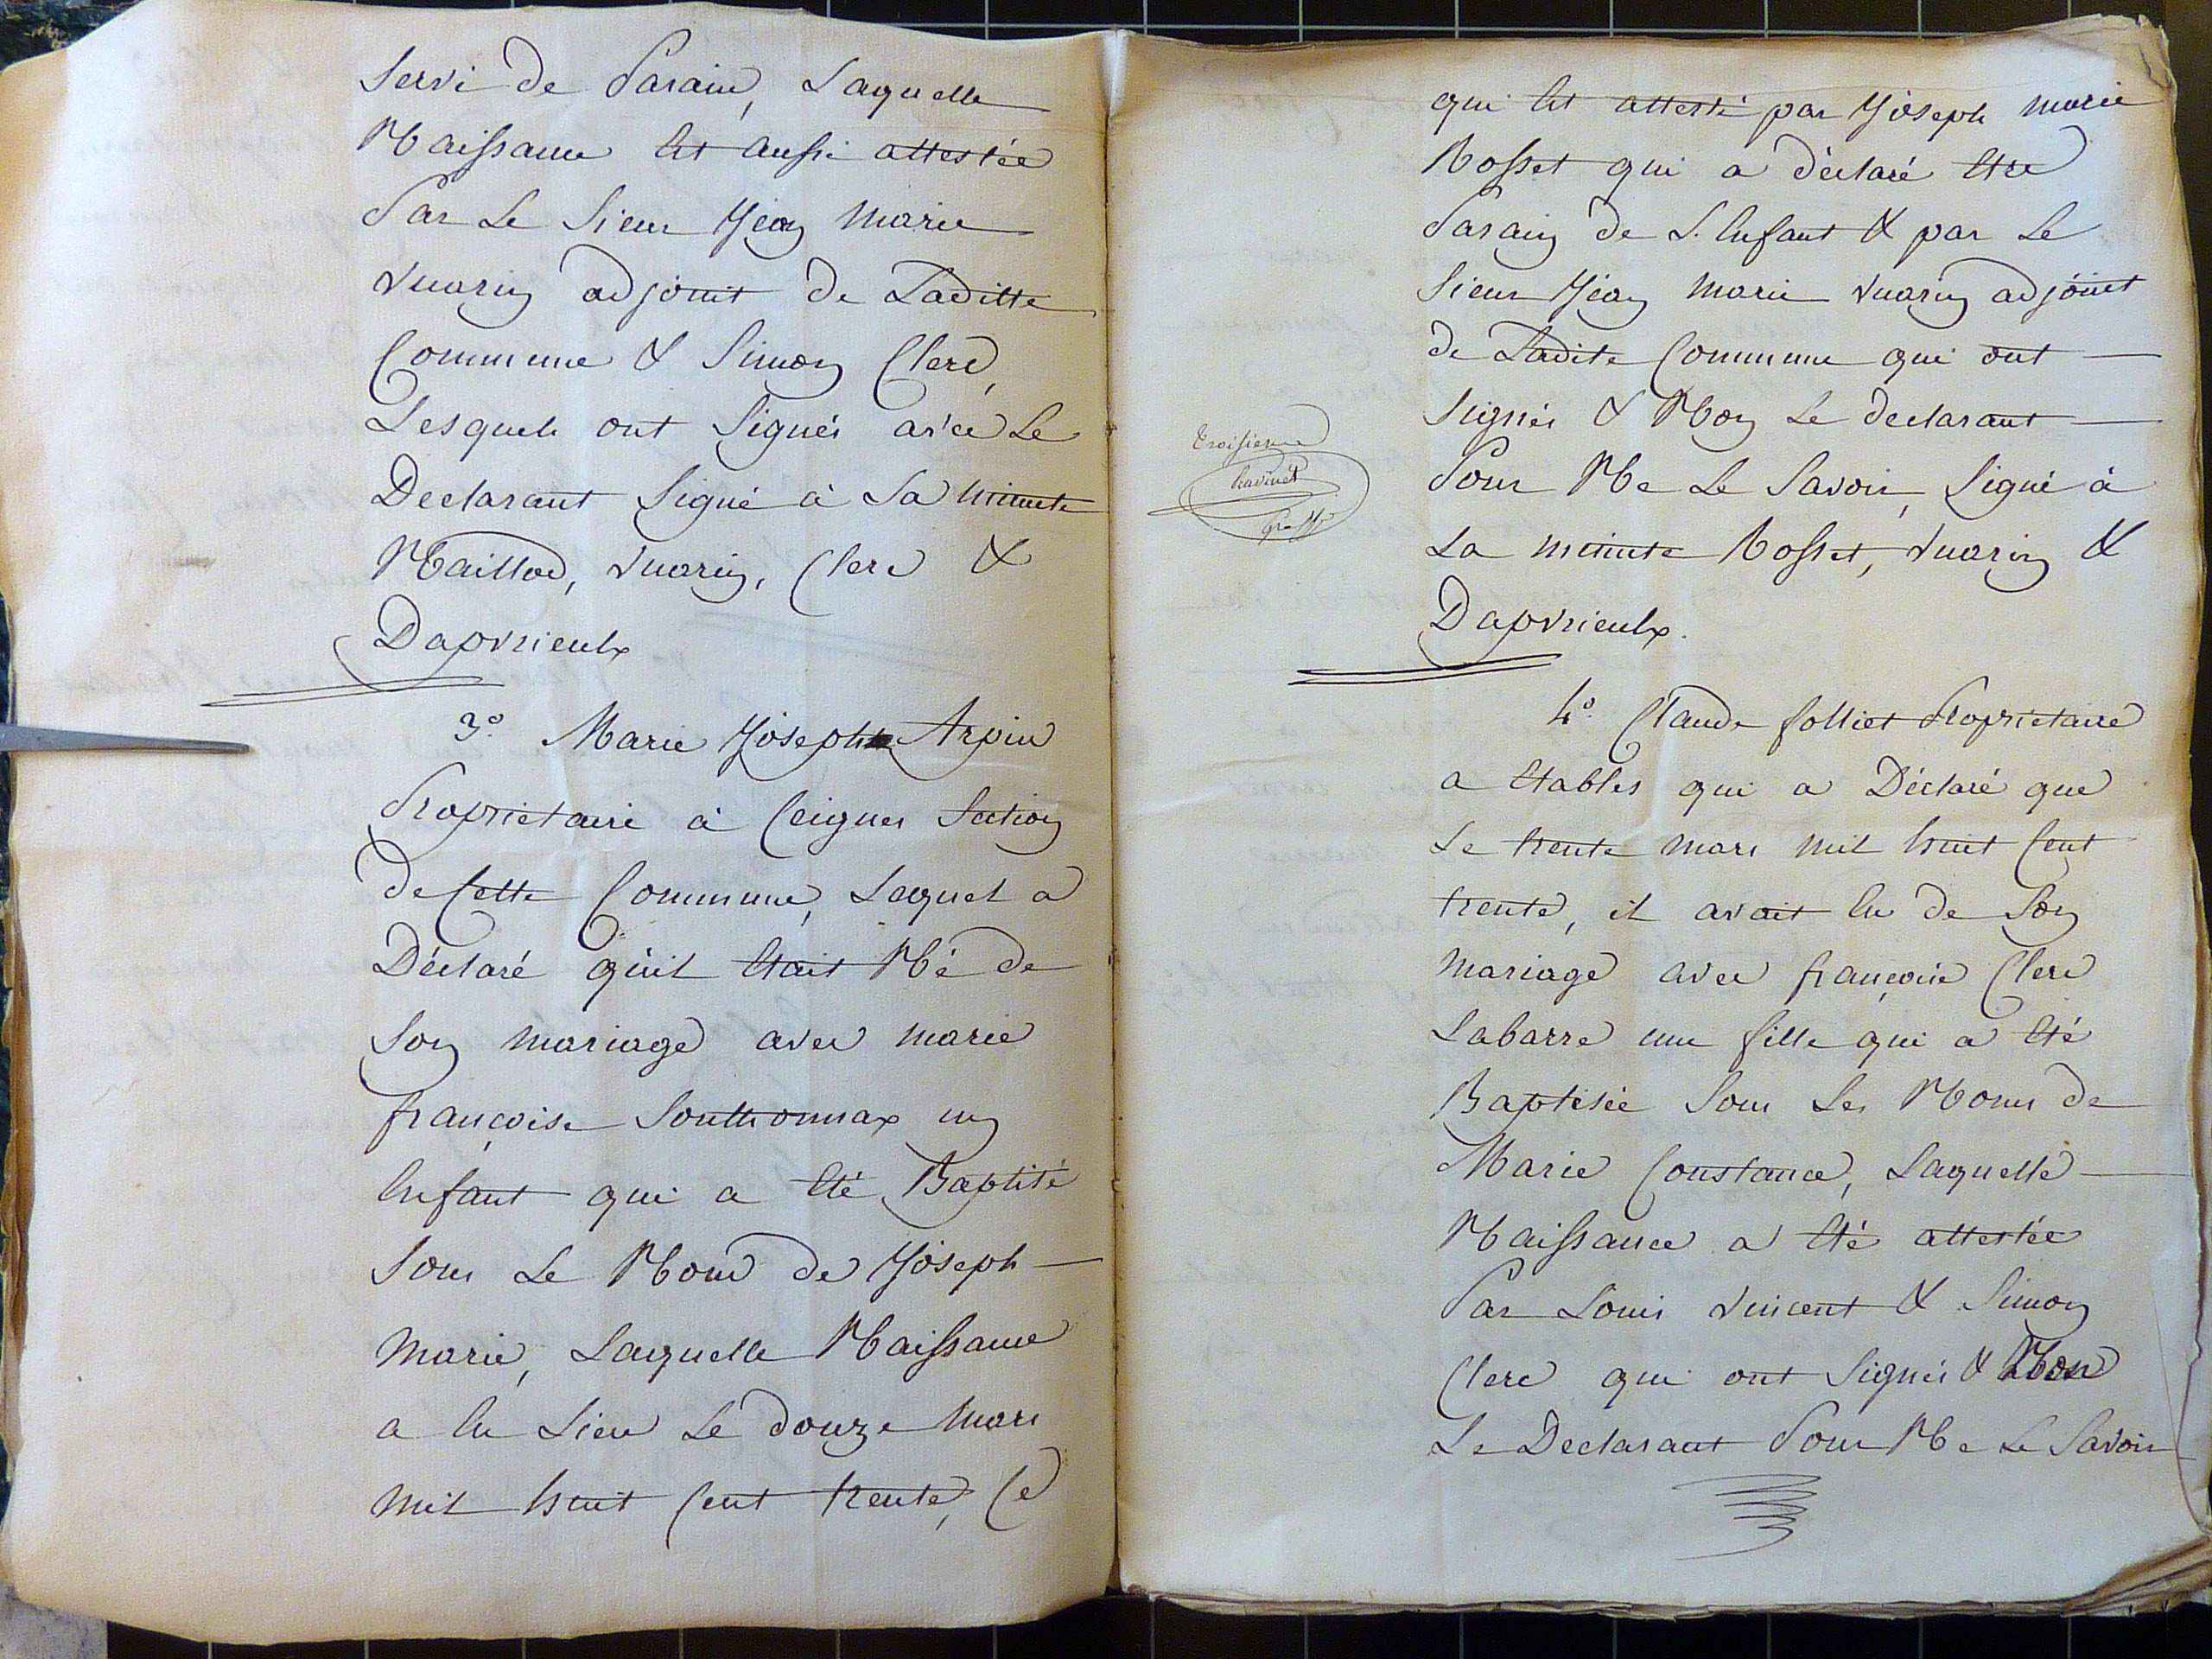 servi de Parain, Laquelle
Naissance Est aussi attestée
Par Le Sieur Jéan Marie
Vuarin adjoint de Laditte
Commune & Simon Clerc,
Lesquels ont Signés avec Le
Declarant Signé à La minute
Maillod, Vuarin, Clerc &
Dapvrieulx
3.o Marie Joseph Arpin
Proprietaire à Ceignes Section
de Cette Commune, Lequel a
Déclaré qu'il Etait Né de
Son mariage avec marie
françoise Southonnax un
Enfant qui a Eté Baptisé
Sous Le Nom de Joseph
Marie, Laquelle Naissance
a Eu Lieu Le douze Mars
mil huit Cent trente, Ce
qui Est attesté par Joseph Marie
Rosset qui a déclaré Etre
Parain de L'Enfant & par Le
Sieur Jéan Marie Vuarin adjoint
de Ladite Commune qui ont
Signés & Non Le declarant
Pour Ne Le Savoir, Signé à
La minute Rosset, Vuarin &
Dapvrieulx.
Troisieme
Ravinet
4.o Claude folliet Proprietaire
a Etables qui a Déclaré que
Le trente Mars mil huit Cent
trente, il avait Eu de Son
mariage avec françoise Clerc
Labarre une fille qui a Eté
Baptisée Sous Les Noms de
Marie Constance, Laquelle
Naissance a Eté attestée
Par Louis Vincent & Simon
Clerc qui ont Signés & Non
Le Declarant Pour Ne Le Savoir